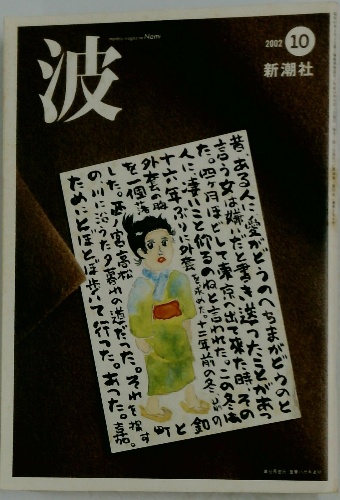 波
monthly magazine Nami
2002 10
新潮社
昔、ある人に愛がどうのへちまがどうのと
言う女は嫌いだと書き送ったことがあっ
た。四ヶ月ほどして東京へ出て来た時、その
人に凄いこと仰るのねと言われた。この冬は
十六年ぶりに外套を求めた。十二年前の冬
外套の
を一個落
した。西ノ宮高松 町
の川に沿うた夕暮れの道だった。それを捜す
ためにとぼとぼ歩いて行った。あった。嘉